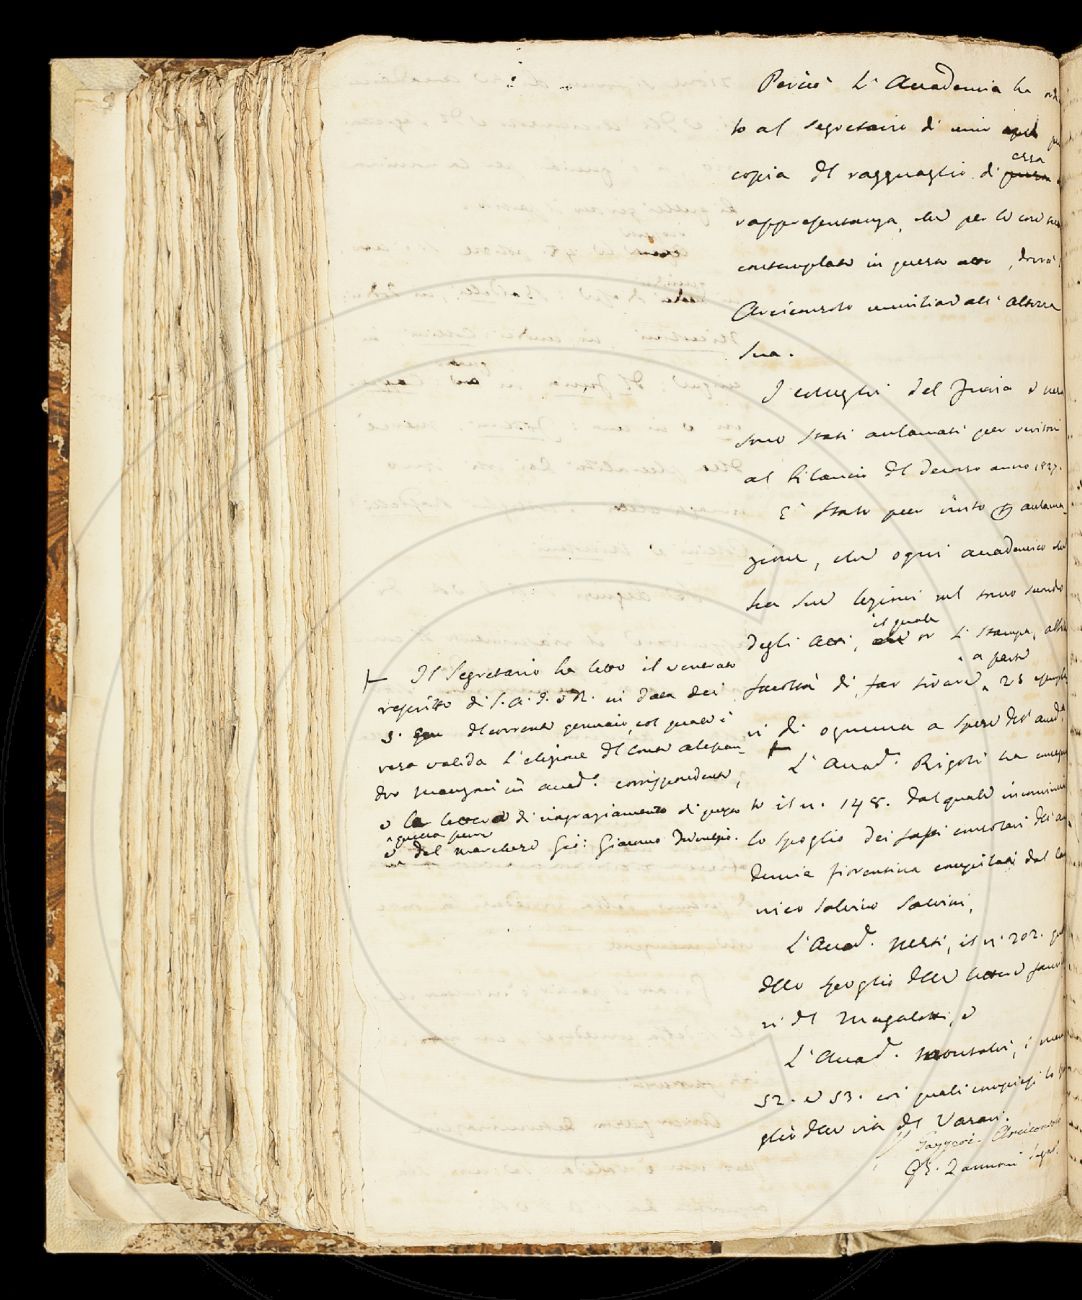 Perciò L'Accademia ha
to al segretario di unir
copia del ragguaglio di essa
rappresentanza, che per le cose
contemplate in questo atto, dovrà
Arciconsolo umiliare all'Altezza
Sua.
I colleghi del Furia e
sono stati autorizzati per revisori
al bilancio del decorso anno 1827.
E' stato pur vinto
zione, che ogni accademico che
ha sue lezioni nel tomo secondo
degli Atti, il quale or si stampa,
facoltà di far tirare a parte 25
ri di ognuna a spese dell'Accad.
L'Accad. Rigoli ha
to il n. 148. dal quale incomincia
lo spoglio dei fasti consolari dell'
demia fiorentina compilati dal
nico Salvino Salvini,
L'Accad. Nesti, il n. 202.
dello spoglio delle lettere
ri del Magalotti, e
L'Accad. Montalvi, i
52. e 53. coi quali compiesi lo
glio delle vite del Vasari.
Arciconsolo
G.B. Zannoni Segr.
Il Segretario ha letto il venerato
rescritto di S.A.I. e R. in data dei
3. del corrente gennaio, col quale è
resa valida l'elezione del Conte Alessan-
dro Manzoni in accad.o corrispondente,
e la lettera di ringraziamento di questo
e quella pure
del marchese Gio: Giacomo Trivulzio.